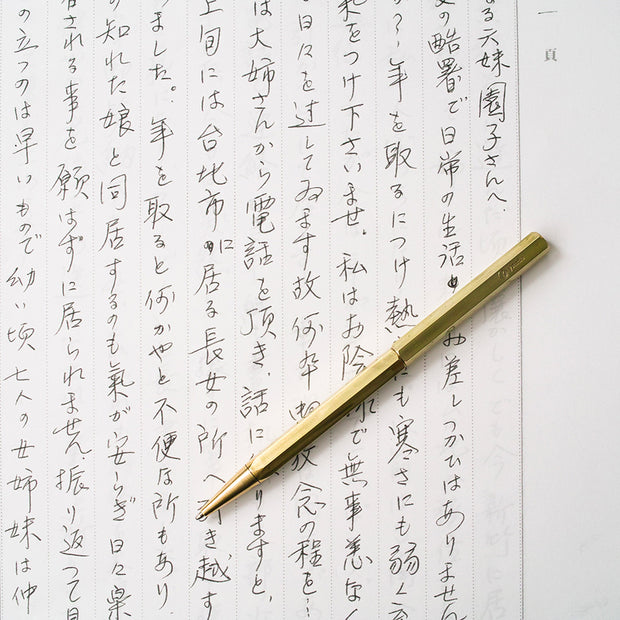 一頁
る六妹園子さんへ
の酷暑で日常の生活 お差しつかひはありません
？年を取るにつけ熱 にも寒さにも弱く
気をつけ下さいませ。私はお陰様で無事恙なく
日々を過してゐます故何卒 放念の程を…
は大姉さんから電話を頂き、話に りますと、
上旬には台北市に居る長女の所へ引き越す
ました。年を取ると何かやと不便な所もあり
の知れた娘と同居するのも氣が安らぎ日々
される事を願はずに居られません 振り返つて
の立つのは早いもので幼い頃七人の女姉妹は仲